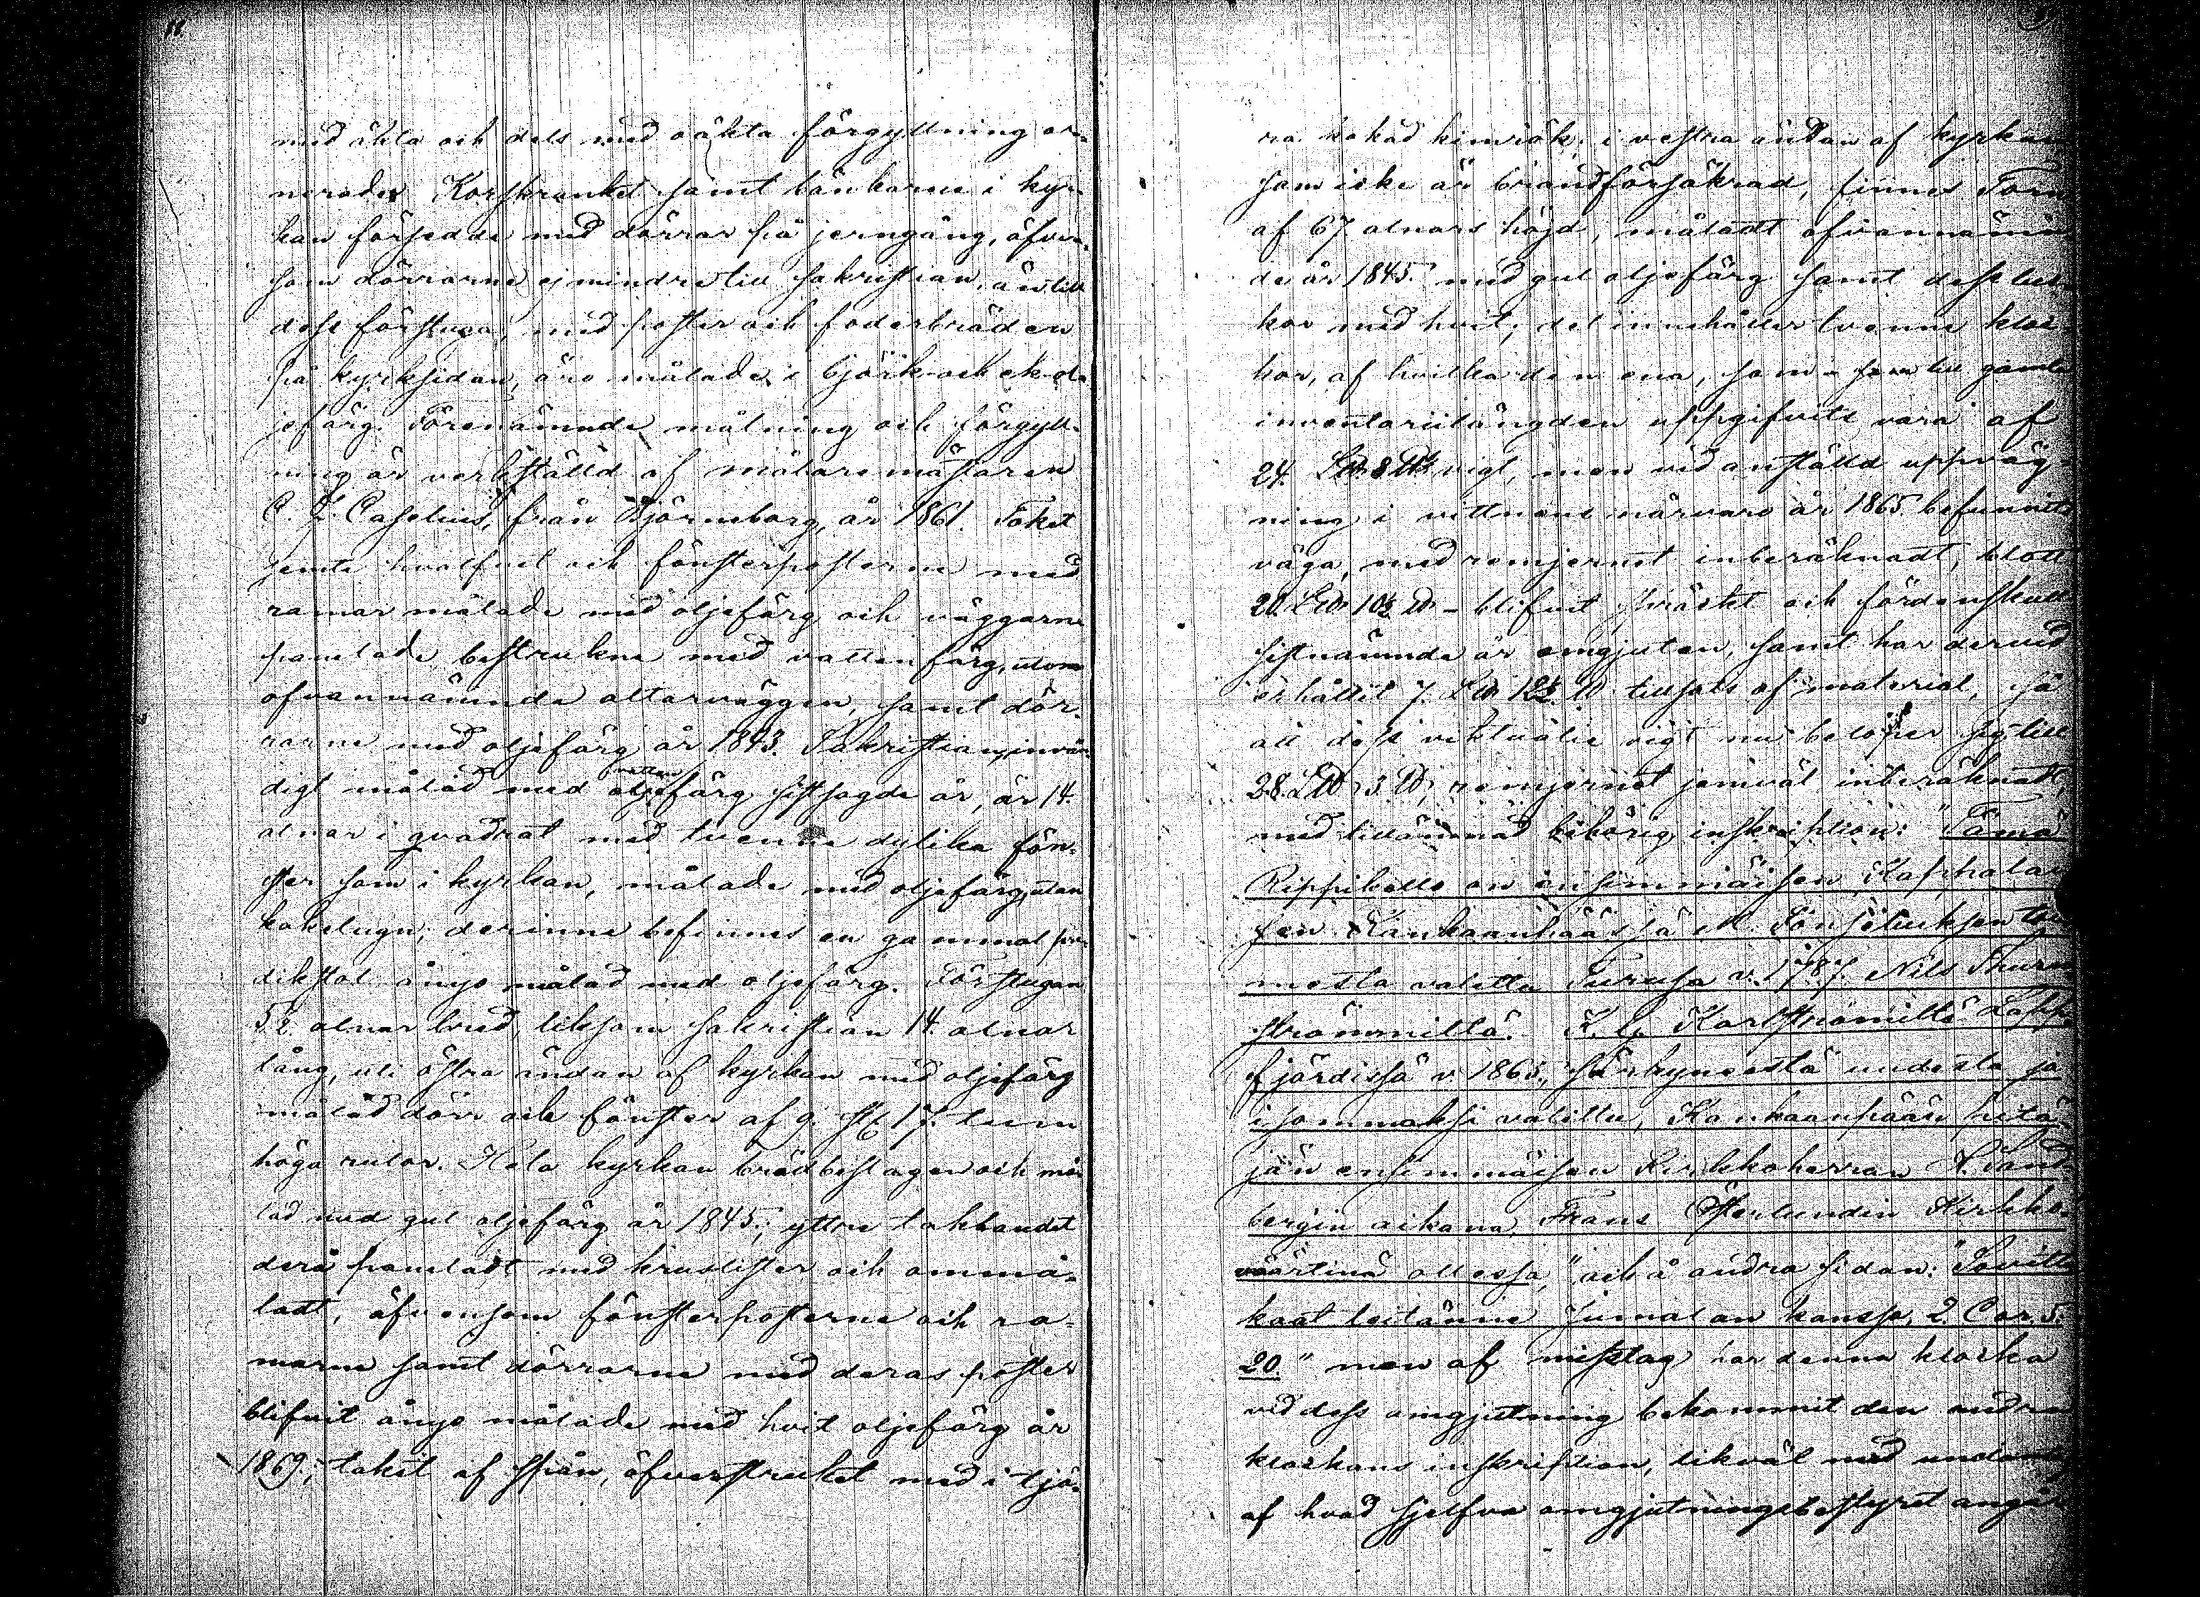 88.
med äkta och dels med oäkta förgyllning or-
nerade. Korskranket samt bänkarne i kyr-
kan försedda med dörrar på jerngång, äfven-
som dörrarne ej mindre till sakristian, än till
dess förstuga, med poster och foderbräden
på kyrksidan, äro målade i björk- och ek-ol-
jefärg. Förenämnde målning och förgyll-
ning är verkställd af målaremästaren
C. J. Caselius, från Björneborg, år 1861. Taket
jemte hvalfvet och fönsterposterne med
ramar målade med oljefärg och väggarne
panelade, bestrukne med vattenfärg, utom
ofvannämnde altarväggen, samt dör-
rarne med oljefärg år 1843. Sakristian, invän-
digt målad med vattenfärg sistsagde år, är 14.
alnar i qvadrat med tvenne dylika fön-
ster som i kyrkan, målade med oljefärg, utan
kakelugn; derinne befinnes en gammal pre-
dikstol ånyo målad med oljefärg. Förstugan
5½ alnar bred, liksom sakristian 14. alnar
lång, uti östra ändan af kyrkan med oljefärg
målad dörr och fönster af 9. st. 17. tum
höga rutor. Hela kyrkan brädbeslagen och må-
lad med gul oljefärg år 1845.; yttre takbandet
derå paneladt med kruslister och ommå-
ladt, äfvensom fönsterposterne och ra-
marne samt dörrarne med deras poster
blifvit ånyo målade med hvit oljefärg år
1869.; taket af spån, öfverstruket med i tjä-
ra kokad kimrök; i vestra ändan af kyrkan
som icke är brandförsäkrad, finnes Torn
af 67 alnars höjd, måladt ofvannämn-
de år 1845. med gul oljefärg samt dess luc-
kor med hvit; det innehåller tvenne kloc-
kor, af hvilka den ena, som
inventariilängden uppgifvits vara af
24. L℔ 8 ℔ vigt, men vid anställd uppväg-
ning i vittnens närvaro år 1865. befunnits
väga, med remjernet inberäknadt, blott
20. L℔ 10½ ℔ - blifvit spräckt och fördenskull
sistnämnde år omgjuten, samt har dervid
erhållit 7. L℔ 12½ ℔ tillsats af material, så
att dess vigt nu belöper sig till
28. L℔ 3. ℔, remjernet jemväl inberäknadt,
med tillämnad behörig inskription: "Tämä
Rippikello on ensimmäisen Kapphalai-
sen Kankaanpäässä M. Tönsbeuksen
mesta valettu Turusa v. 1787. Nils Thure
strömmiltä. K. G. Karlströmiltä Lapp-
fjärdissä v. 1865., särkyneestä uudesta ja
isommaksi valittu, Kankaanpään pitä-
jän ensimmäisen Kirkkoherran
bergin aikana, Frans Österlundin Kirkko-
väärtinä ollessa," och å andra sidan: "Sovitta-
kaat teitänne Jumalan kanssa, 2. Cor. 5.
20." men af misstag har denna klocka
vid dess omgjutning bekommit den andra
klockans inskription, likväl med undantag
af hvad sjelfva omgjutningsbestyret angår